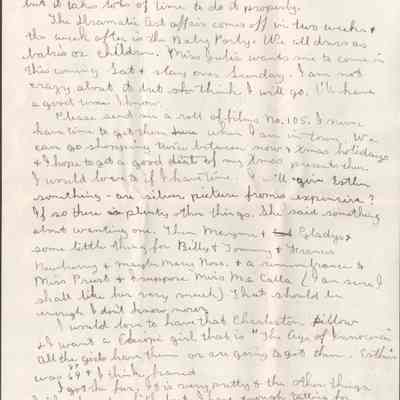 but it takes lots of time to do it properly.
The Dramatic Art affair comes off in two weeks &
the week after is the Baby Party. We all dress as
babies or children. Miss Julia wants me to come in
this coming Sat & stay over Sunday. I am not
crazy about it but think I will go. I'll have
a good time I know.
Please send me a roll of films No. 105. I never
have time to get them when I am in town. We
can go shopping twice between now & Xmas holidays
& I hope to get a good of my Xmas presents then.
I would love to if I have time. I'll give Esther
something - are silver picture frames expensive?
If so there is plenty other things. She said something
about wanting one. Then Margaret & Gladys &
some little thing for Billy & Tommy & Frances
Newberry & maybe Marie Noss. & a remembrance to
Miss Priest & I suppose Miss McCalla (I am sure I
shall like her very much) That should be
enough I don't know more.
I would love to have that Charleston pillow
& I want a girl that is "The Age of Innocence"
All the girls have them or are going to get them. Esther's
was & I think framed
I got the fur. It is very pretty & the other things